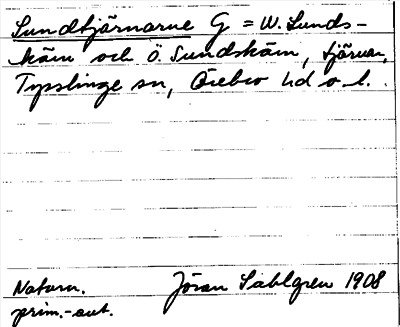 Sundtjärnarne G = W. Sunds-
kärn och Ö. Sundskärn, tjärnar,
Tysslinge sn, Örebro hd o. l.
Naturn. Jöran Sahlgren 1908
prim.-aut.